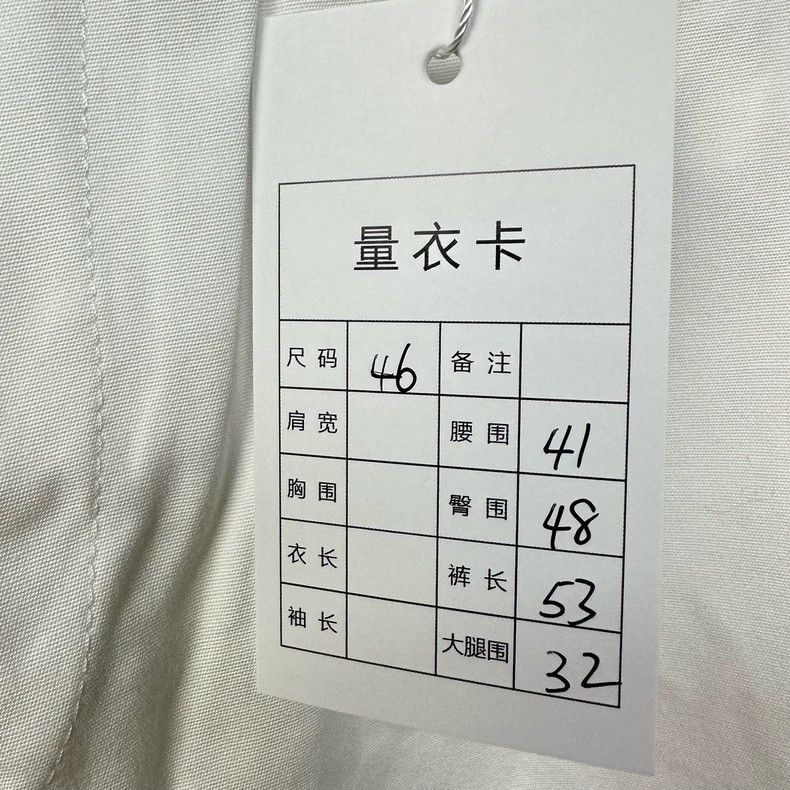 量衣卡
尺码 46 备注
肩宽 腰围 41
胸围 臀围 48
衣长 裤长 53
袖长 大腿围 32